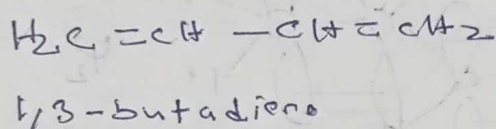 H₂C = CH - CH = CH₂
1,3-butadiene